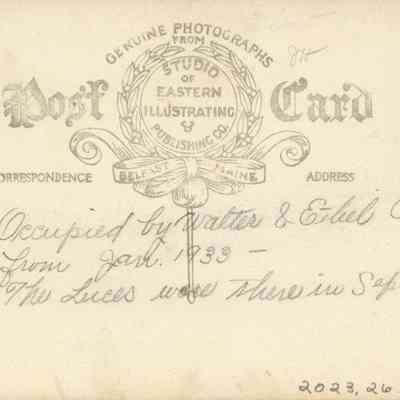 GENUINE PHOTOGRAPHS
FROM
STUDIO
OF
EASTERN
ILLUSTRATING
&
PUBLISHING CO.
Post Card
BELFAST MAINE
ORRESPONDENCE
ADDRESS
Occupied by Walter & Ethel
from Jan. 1933 -
The Luces were there in Sep
2023, 26